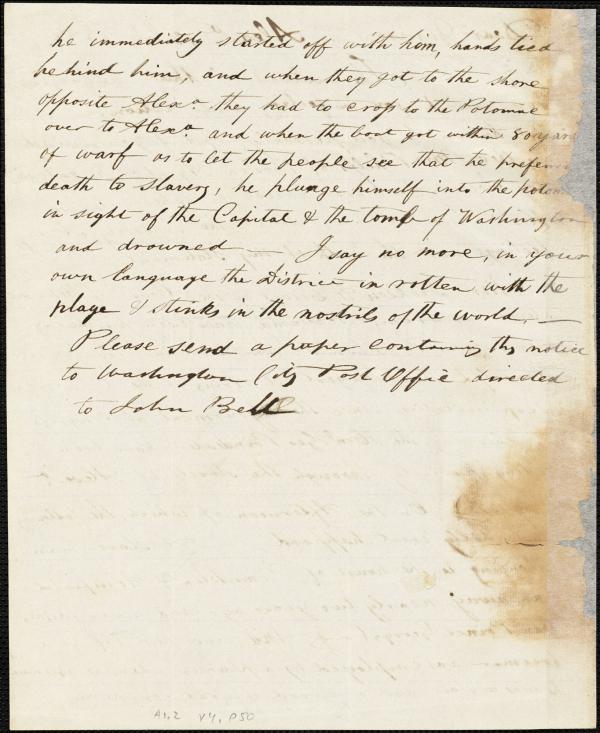 he immediately started off with him, hands tied
behind him, and when they got to the shore
opposite Alexa. they had to cross to the Potomac
over to Alexa and when the boat got within 80 yard
of warf as to let the people see that he prefer
death to slavery, he plunge himself into the poto
in sight of the Capital & the tomb of Washington
and drowned — I say no more, in your
own language the District in rotten with the
plage & stinks in the nostrils of the world. —
Please send a paper containing this notice
to Washington City Post Office directed
to John Bell
A1.2 V4, P50